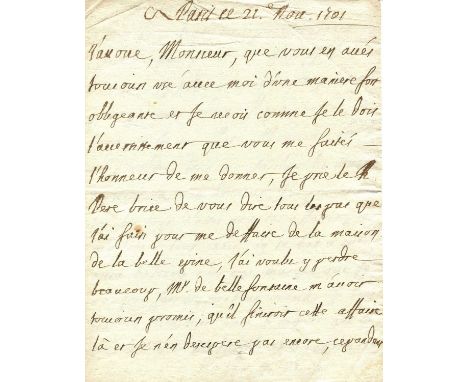 a Paris ce 21e Nov. 1701
J'auoue, Monsieur, que vous en aués
tousiours vsé auec moi d'vne maniere fort
obligeante et Je recois comme Je le Dois
l'auertissement que vous me faites
l'honneur de me donner, Je prie le R
Pere brice de vous dire tous les pas que
J'ai fait pour me deffaire de la maison
de la belle epine, J'ai voulu y perdre
beaucoup, Mr. de belle fontaine m'auoit
tousiours promis, qu'il finiroit cette affaire
là et Je n'en desespere pas encore, cependant